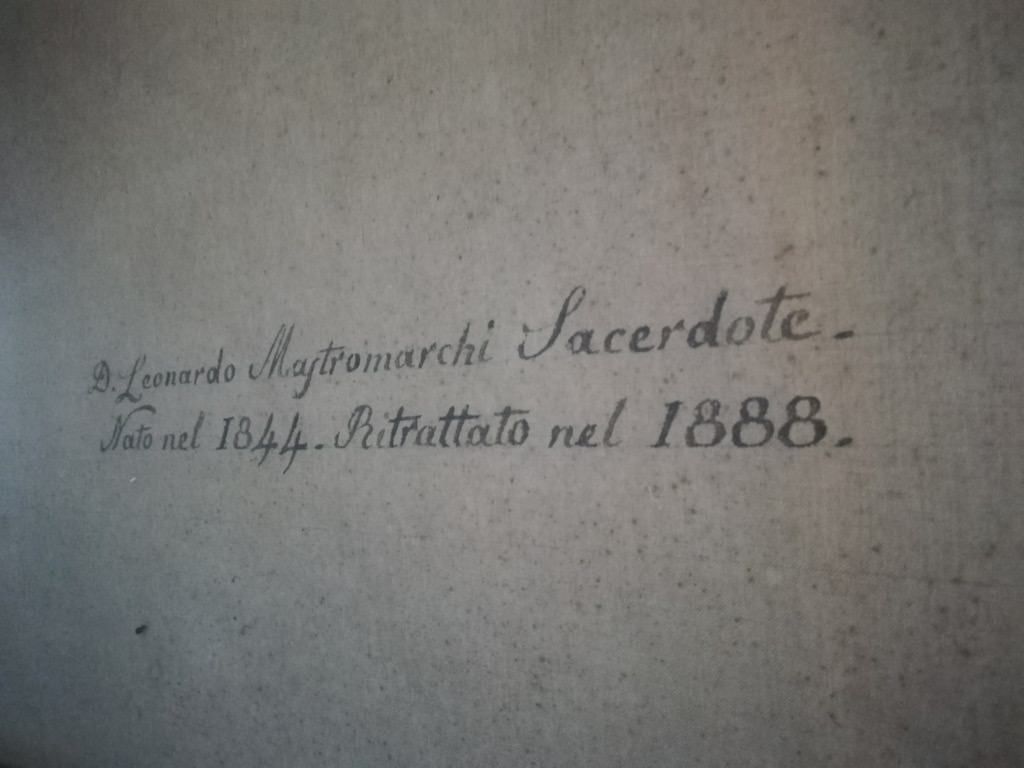 D. Leonardo Maſtromarchi Sacerdote.
Nato nel 1844. Ritrattato nel 1888.